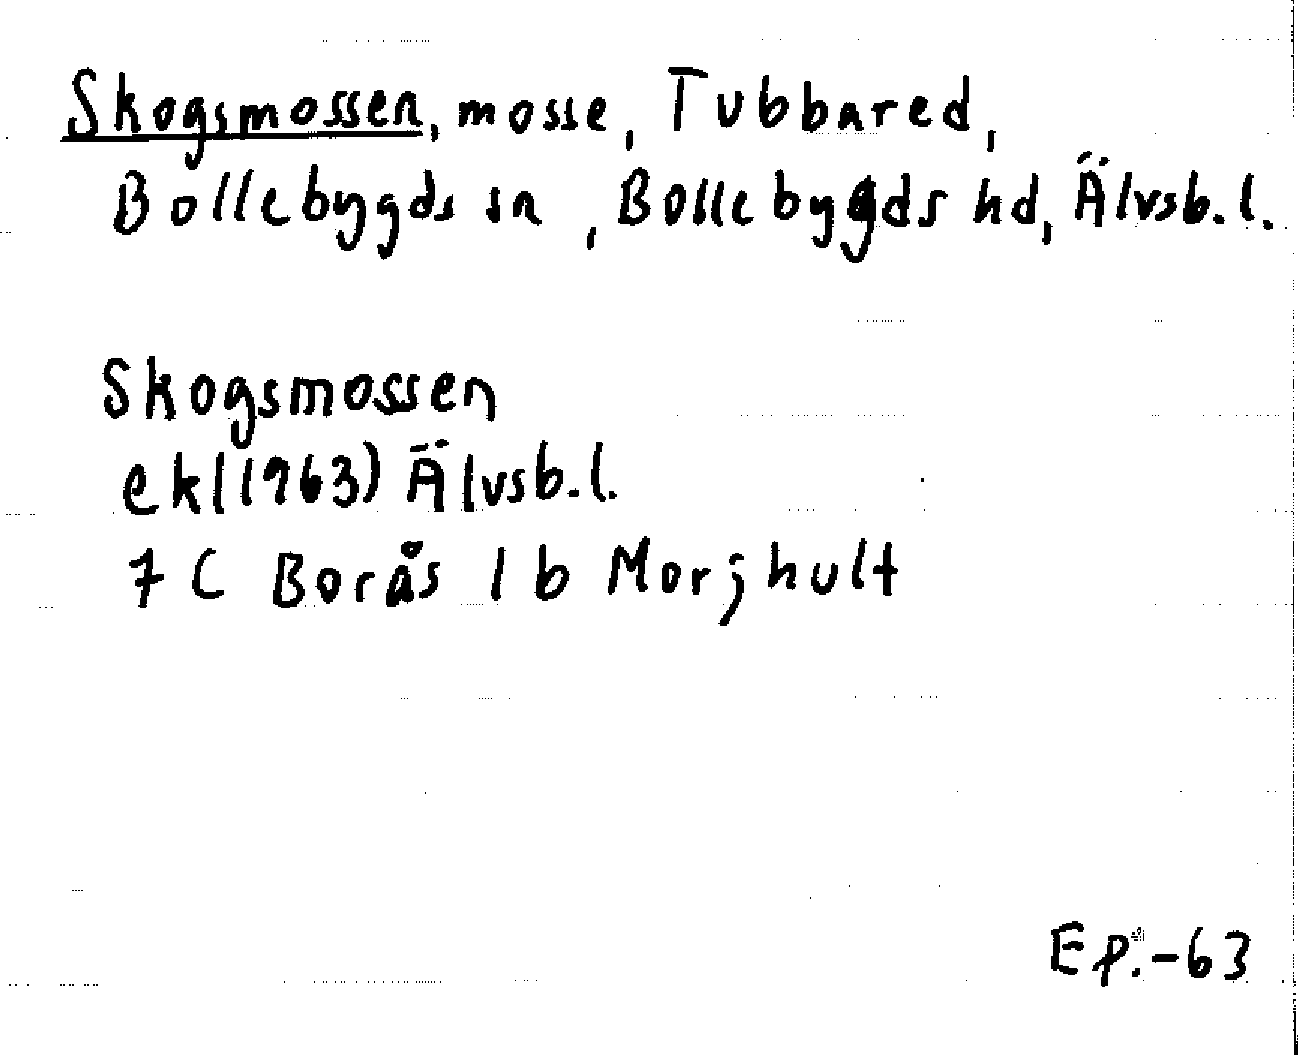 Skogsmossen, mosse, Tubbared,
Bollebygds sn, Bollebygds hd, Älvsb. l.
Skogsmossen
ekl(1963) Älvsb. l.
7 C Borås 1 b Morjhult
Ep.-63